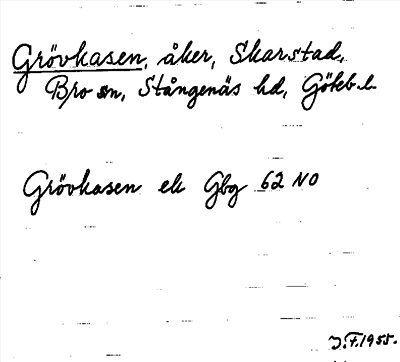 Grövkasen, åker, Skarstad,
Bro sn, Stångenäs hd, Göteb. l.
Grövkasen ek Gbg 62 NO
J.F. 1955.